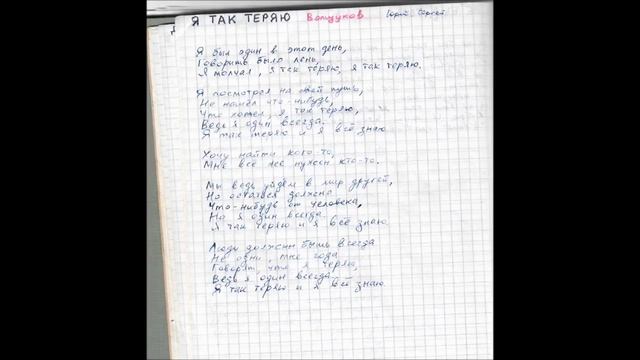 Я ТАК ТЕРЯЮ Волчуков Юрий Сергей
Я был один в этот день,
Говорить было лень,
Я молчал, я так теряю, я так теряю.
Я посмотрел на свой путь,
Не нашёл что-нибудь,
Что хотел, я так теряю,
Ведь я один всегда.
Я так теряю и я всё знаю
Хочу найти кого-то,
Мне всё же нужен кто-то.
Мы ведь уйдём в мир другой,
Но остаться должно
Что-нибудь от человека,
Но я один всегда
Я так теряю и я всё знаю
Люди должны быть всегда
Не одни, мне года
Говорят, что я теряю,
Ведь я один всегда
Я так теряю и я всё знаю